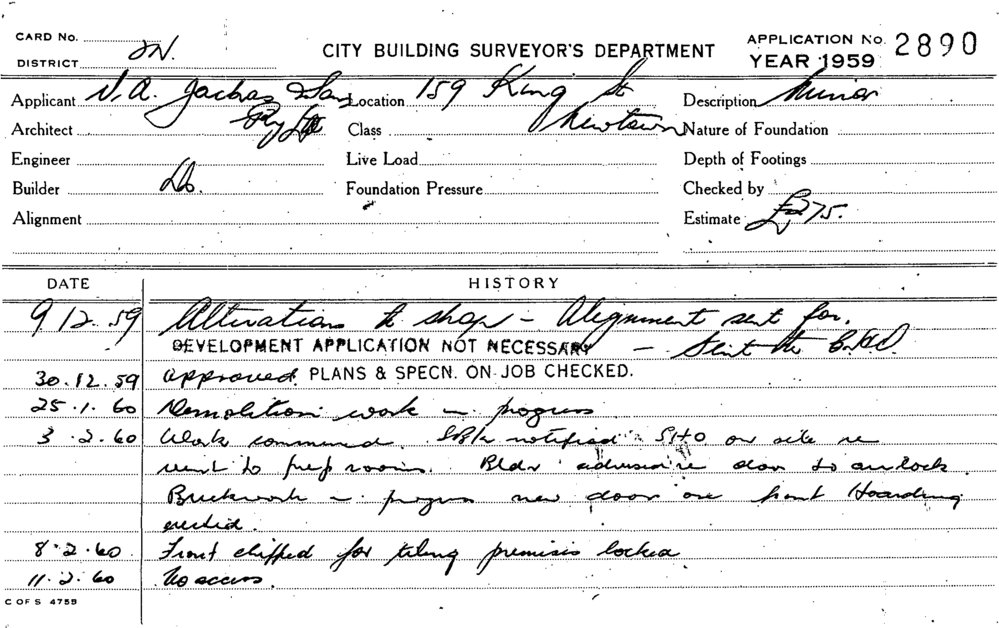 CARD No.
DISTRICT 2N.
CITY BUILDING SURVEYOR'S DEPARTMENT
APPLICATION No. 2890
YEAR 1959
Applicant V.A. & Son Location 159 King St Description Minor
Architect Pty Ltd Class Newtown Nature of Foundation
Engineer Live Load Depth of Footings
Builder Do. Foundation Pressure Checked by
Alignment Estimate £275.
DATE HISTORY
9/12.59 Alterations to shop – Alignment sent for.
DEVELOPMENT APPLICATION NOT NECESSARY – Sent to
30.12.59 approved. PLANS & SPECN. ON JOB CHECKED.
25.1.60 Demolition work in progress
3.2.60 Work commenced. notified SHO on site re
vent to prep room. Bldr door to airlock.
Brickwork in progress new door one front Hoarding
erected.
8.2.60 Front chipped for tiling premises locked
11.2.60 No access.
C OF S 4759